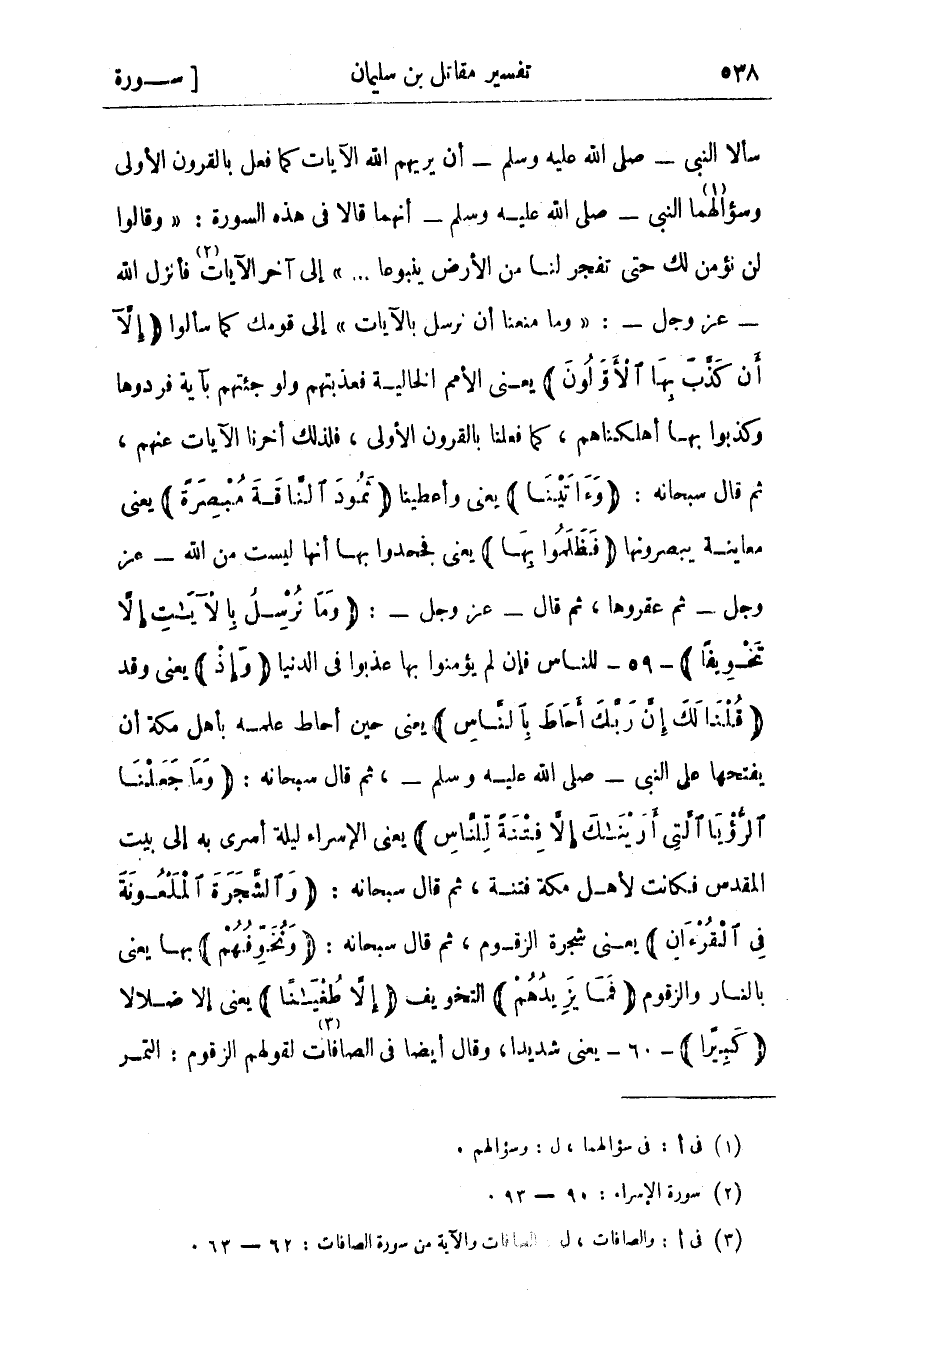 ٥٣٨ تفسير مقاتل بن سليمان [ ســـورة
سألا النبى — صلى الله عليه وسلم — أن يريهم الله الآيات كما فعل بالقرون الأولى
وسؤالهما(١) النبى — صلى الله عليه وسلم — أنهما قالا فى هذه السورة : « وقالوا
لن نؤمن لك حتى تفجر لنا من الأرض ينبوعا ... » إلى آخر الآيات(٢) فأنزل الله
— عز وجل — : « وما منعنا أن نرسل بالآيات » إلى قومك كما سألوا ﴿ إِلَّآ
أَن كَذَّبَ بِهَا ٱلْأَوَّلُونَ ﴾ يعنى الأمم الخالية فعذبتهم ولو جئتهم بآية فردوها
وكذبوا بها أهلكناهم ، كما فعلنا بالقرون الأولى ، فلذلك أخرنا الآيات عنهم ،
ثم قال سبحانه : ﴿ وَءَاتَيْنَا ﴾ يعنى وأعطينا ﴿ ثَمُودَ ٱلنَّاقَةَ مُبْصِرَةً ﴾ يعنى
معاينة يبصرونها ﴿ فَظَلَمُوا بِهَا ﴾ يعنى فجحدوا بها أنها ليست من الله — عز
وجل — ثم عقروها ، ثم قال — عز وجل — : ﴿ وَمَا نُرْسِلُ بِالْآيَـٰتِ إِلَّا
تَخْوِيفًا ﴾ — ٥٩ — للناس فإن لم يؤمنوا بها عذبوا فى الدنيا ﴿ وَإِذْ ﴾ يعنى وقد
﴿ قُلْنَا لَكَ إِنَّ رَبَّكَ أَحَاطَ بِٱلنَّاسِ ﴾ يعنى حين أحاط علمه بأهل مكة أن
يفتحها على النبى — صلى الله عليه وسلم — ، ثم قال سبحانه : ﴿ وَمَا جَعَلْنَا
ٱلرُّؤْيَا ٱلَّتِى أَرَيْنَـٰكَ إِلَّا فِتْنَةً لِّلنَّاسِ ﴾ يعنى الإسراء ليلة أسرى به إلى بيت
المقدس فكانت لأهل مكة فتنة ، ثم قال سبحانه : ﴿ وَٱلشَّجَرَةَ ٱلْمَلْعُونَةَ
فِى ٱلْقُرْءَانِ ﴾ يعنى شجرة الزقوم ، ثم قال سبحانه : ﴿ وَنُخَوِّفُهُمْ ﴾ بها يعنى
بالنار والزقوم ﴿ فَمَا يَزِيدُهُمْ ﴾ التخويف ﴿ إِلَّا طُغْيَـٰنًا ﴾ يعنى إلا ضلالا
﴿ كَبِيرًا ﴾ — ٦٠ — يعنى شديدا، وقال أيضا فى الصافات(٣) لقولهم الزقوم : التمر
(١) فى أ : فى سؤالهما ، ل : وسؤالهم .
(٢) سورة الإسراء : ٩٠ — ٩٣ .
(٣) فى أ : والصافات ، ل : الصافات والآية من سورة الصافات : ٦٢ — ٦٣ .